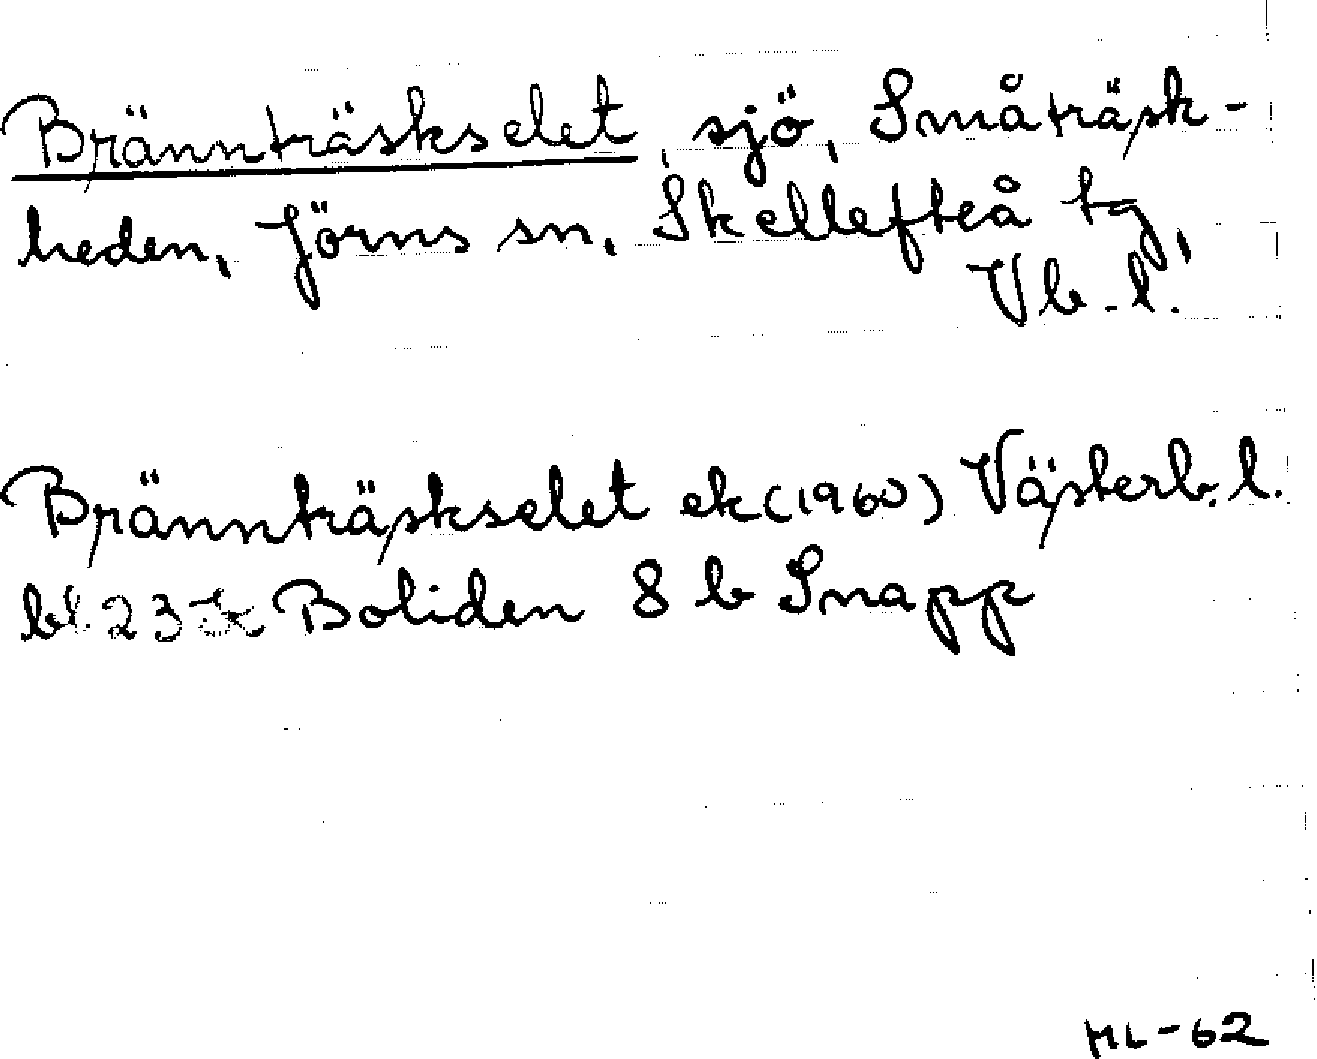 Brännträskselet, sjö, Småträsk-
heden, Jörns sn, Skellefteå tg,
Vb. l.
Brännträskselet ek (1960) Västerb. l.
bl 23 K Boliden 8 b Snapp
ML-62